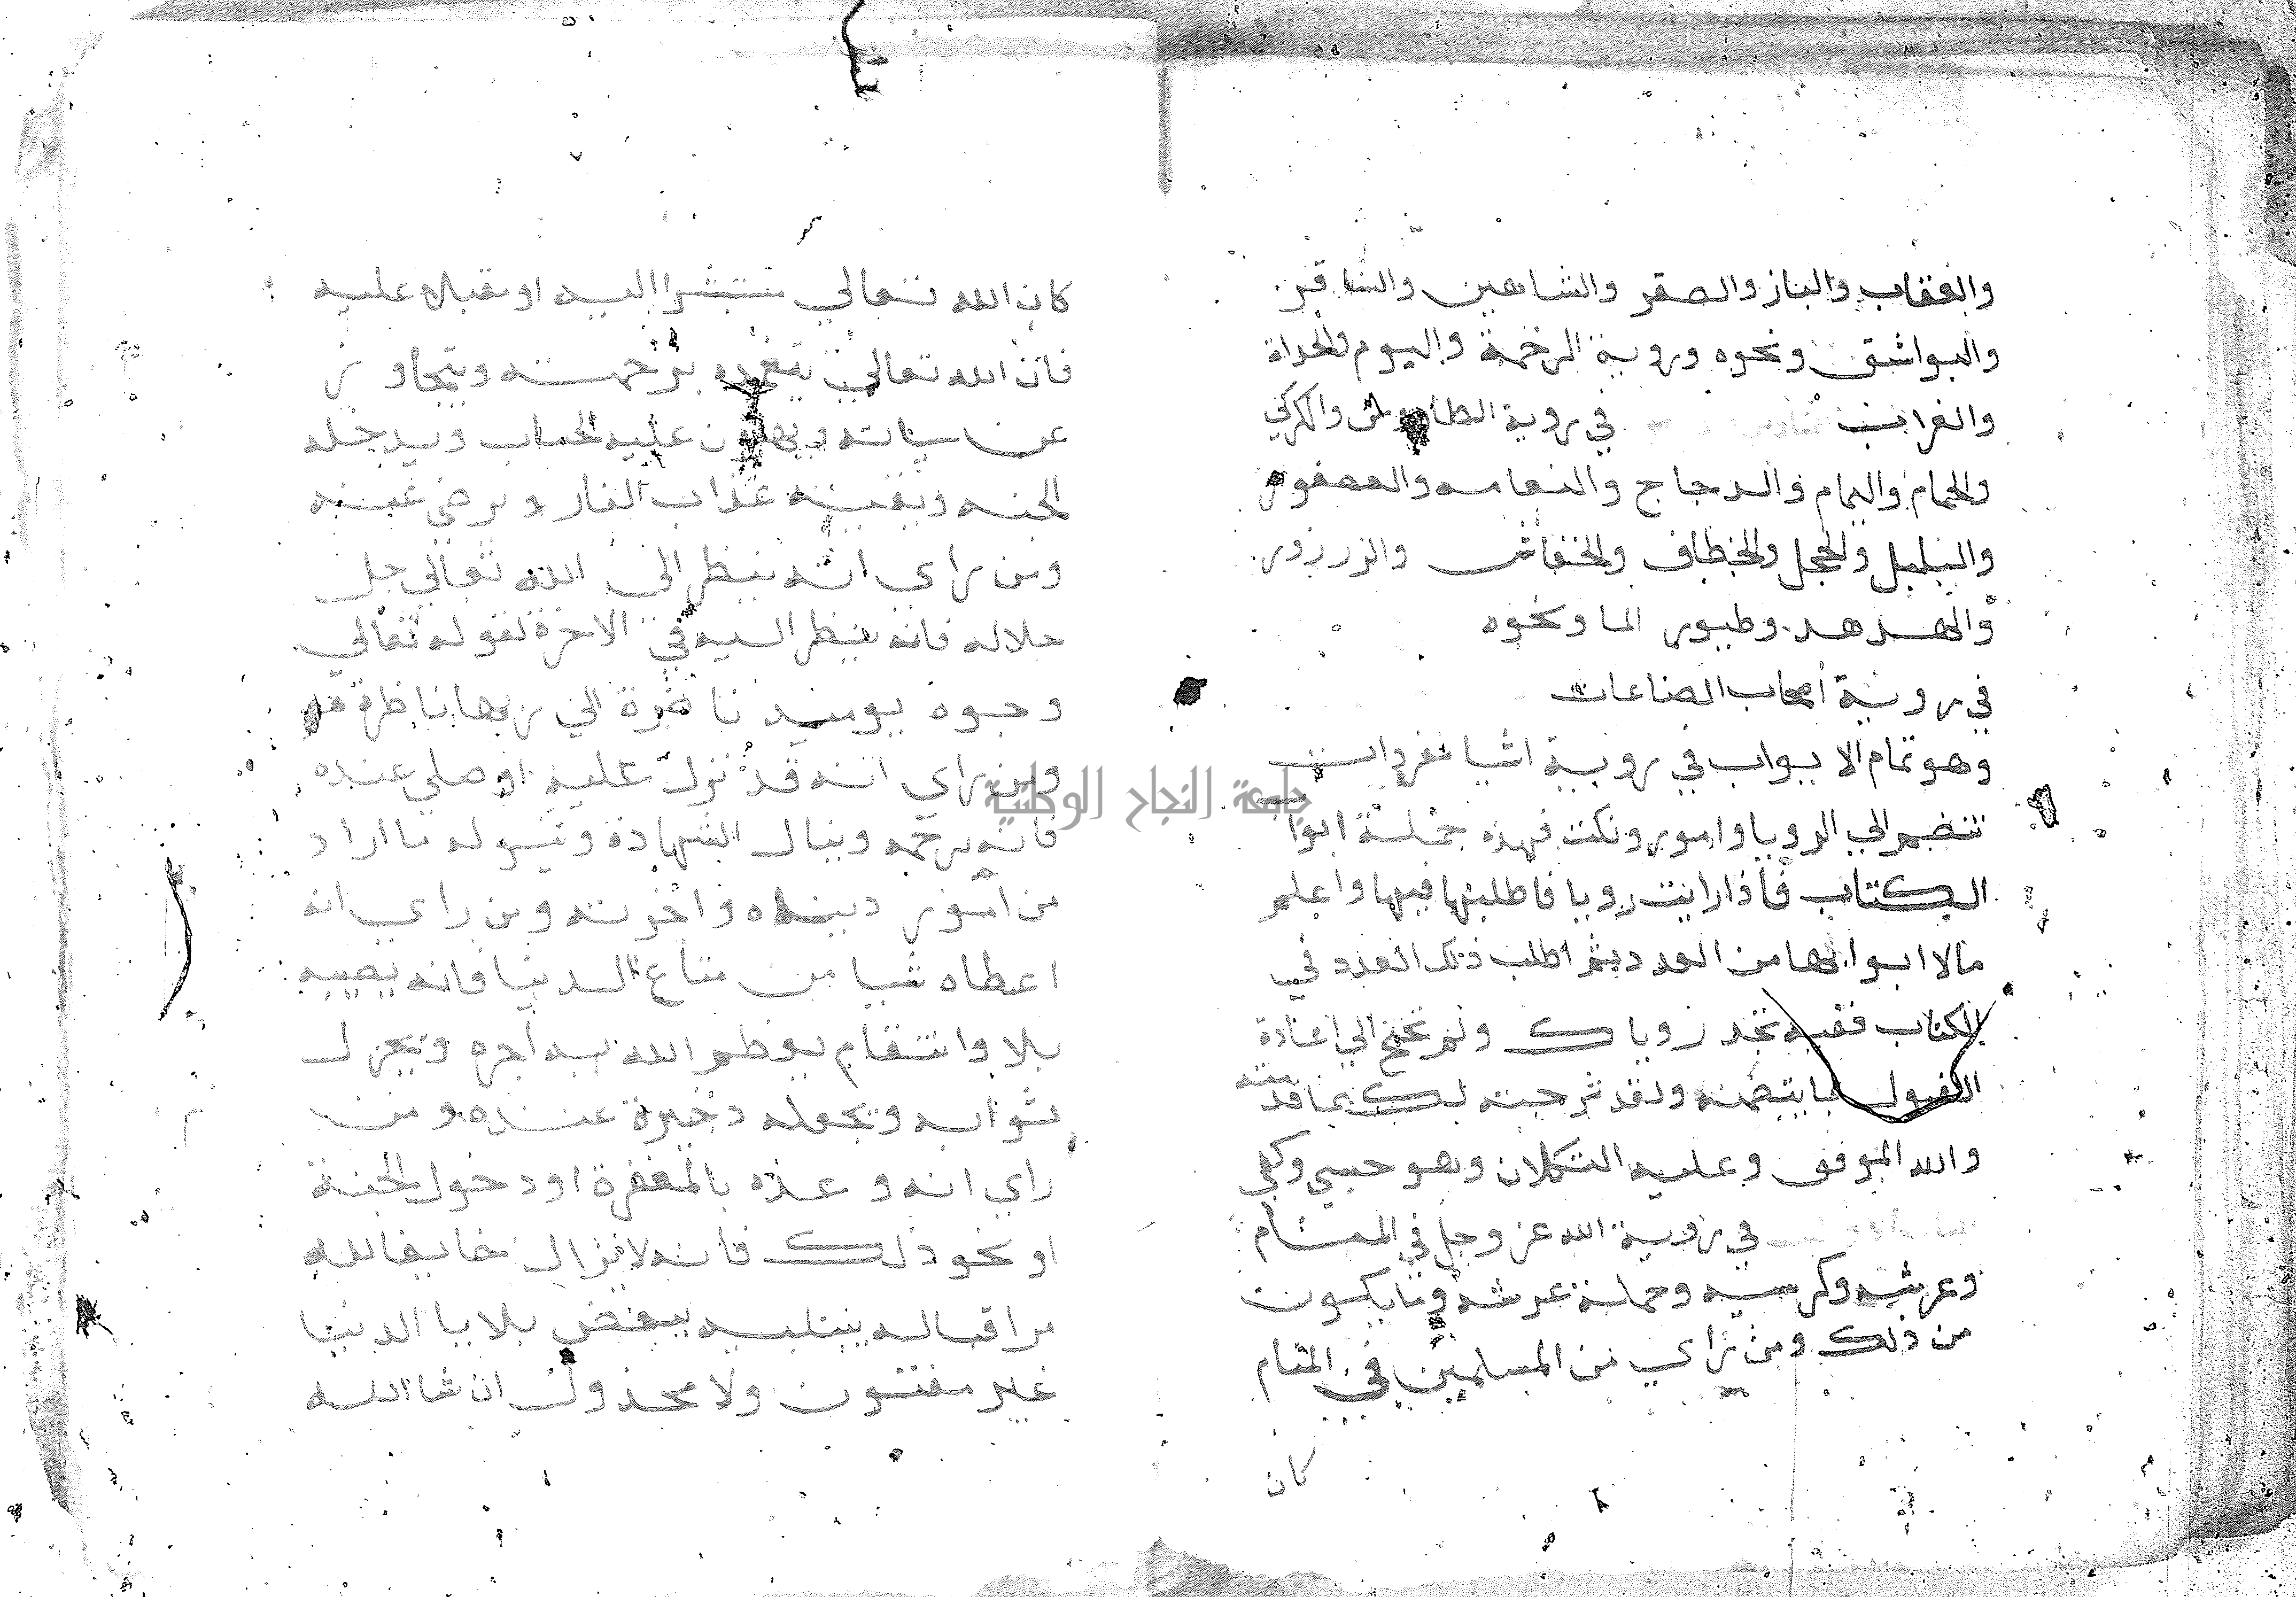 والعقاب والباز والصقر والشاهين والساقر
والبواشق ونحوه وروية الرخمة والبوم والحداة
والغراب في روية الطاووس والكركي
والحمام واليمام والدجاج والنعامه والعصفور
والبلبل والحجل والخطاف والخفاش والزرزور
والهدهد وطيور الما ونحوه
في روية اصحاب الصناعات
وهو تمام الابواب في روية اشيا نفردات
تنضم الي الرويا وامور ونكت فهذه جملة ابوا
الكتاب فاذا رايت رويا فاطلبها فيها واعلم
مالا ابوابها من العدد ثم اطلب ذلك العدد في
الكتاب ففيه تجد روياك ولم تحتج الي اعادة
الفصول بما يتضمنه ولقد شرحته لك بما قدمته
والله الموفق وعليه التكلان وهو حسبي وكفي
في روية الله عز وجل في المنام
وعرشه وكرسيه وحملة عرشه وما يكون
من ذلك ومن راي من المسلمين في المنام
كان
كان الله تعالي مبتشرا اليه او مقبلا عليه
فان الله تعالي يتغمده برحمته ويتجاوز
عن سياته ويهون عليه الحساب ويدخله
الجنه ويقيه عذاب النار ويرضي عنه
ومن راي انه ينظر الي الله تعالي جل
جلاله فانه ينظر اليه في الاخرة لقوله تعالي
وجوه يوميذ ناضرة الي ربها ناظرة
ومن راي انه قد نزل عليه او صلي عنده
فانه يرحمه وينال الشهادة وييسر له ما اراد
من امور دينه واخرته ومن راي انه
اعطاه شيا من متاع الدنيا فانه يصيبه
بلا وانتقام يعظم الله به اجره ويجزل
ثوابه ويجعله ذخيرة عنده ومن
راي انه وعده بالمغفرة او دخول الجنة
او نحو ذلك فانه لا يزال خايفا لله
مراقبا له يبتليه ببعض بلايا الدنيا
غير مفتون ولا مخذول ان شا الله
جامعة النجاح الوطنية